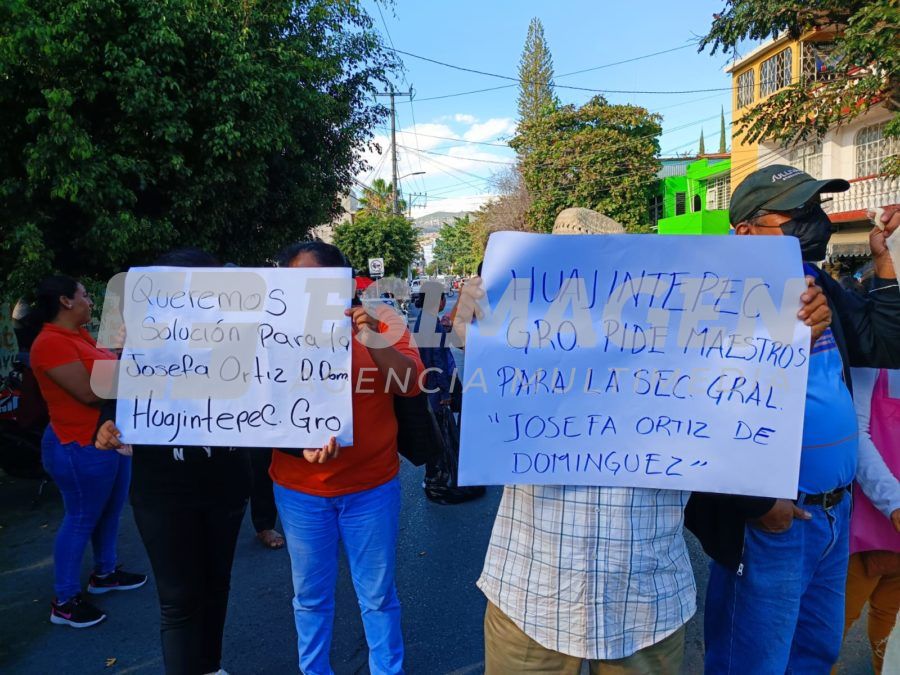 Queremos
Solución Para la
Josefa Ortiz D. Dom.
Huajintepec. Gro
HUAJINTEPEC
GRO. PIDE MAESTROS
PARA LA SEC. GRAL.
"JOSEFA ORTIZ DE
DOMINGUEZ"
ESIMAGEN
AGENCIA MULTIMEDIA